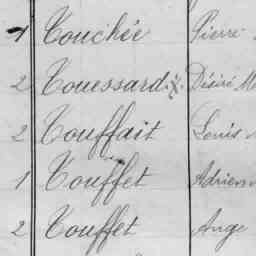 1 Touchée Pierre
2 Touessard Désiré
2 Touffait Louis
1 Touffet Adrien
2 Touffet Ange